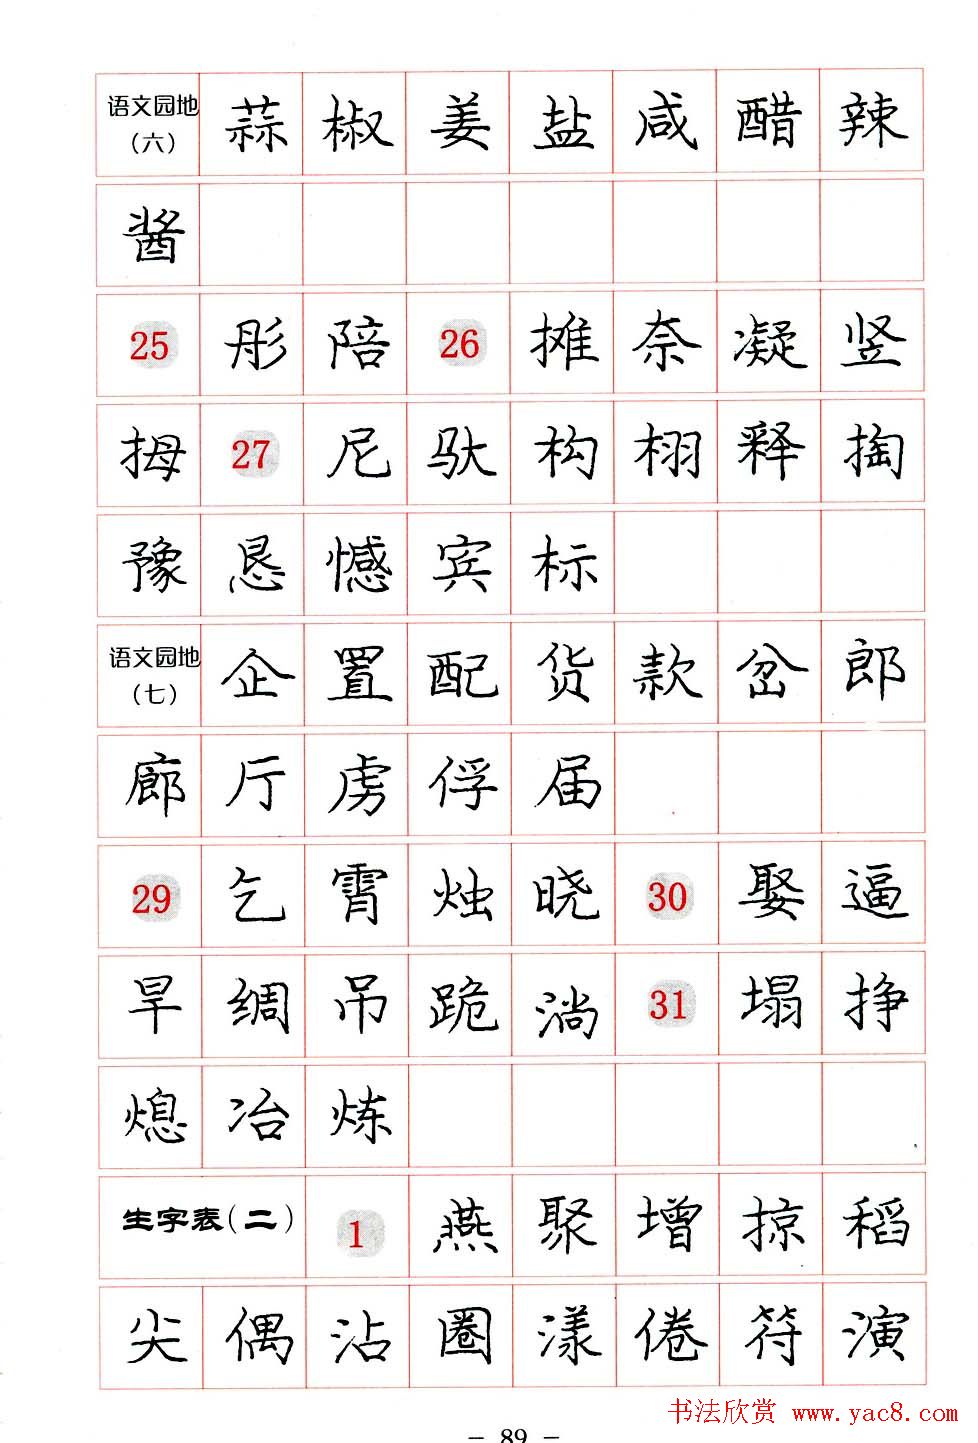 语文园地(六) 蒜 椒 姜 盐 咸 醋 辣
酱
25 彤 陪 26 摊 奈 凝 竖
拇 27 尼 驮 构 栩 释 掏
豫 恳 憾 宾 标
语文园地(七) 企 置 配 货 款 岔 郎
廊 厅 虏 俘 届
29 乞 霄 烛 晓 30 娶 逼
旱 绸 吊 跪 淌 31 塌 挣
熄 冶 炼
生字表(二) 1 燕 聚 增 掠 稻
尖 偶 沾 圈 漾 倦 符 演
书法欣赏 www.yac8.com
- 89 -